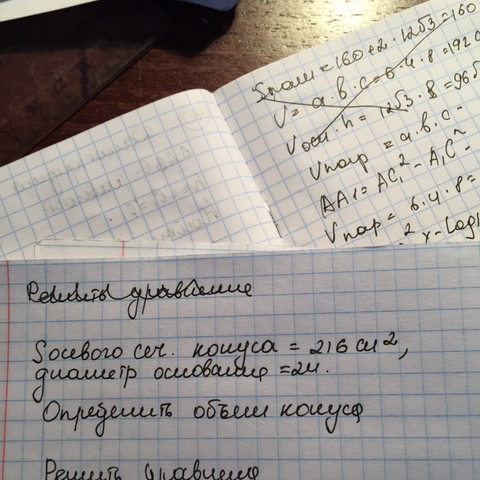 Sполн = 160 + 2 · 12√3 = 160
V = a · b · c = 6 · 4 · 8 = 192 c
Vосн · h = 12√3 · 8 = 96√
Vпар = a · b · c -
AA1 = AC1² - A1C² -
Vпар = 6 · 4 · 8 =
² x - Log
Решить уравнение
Sосевого сеч. конуса = 216 см²,
диаметр основание = 24.
Определить объем конуса
Решить уравнение